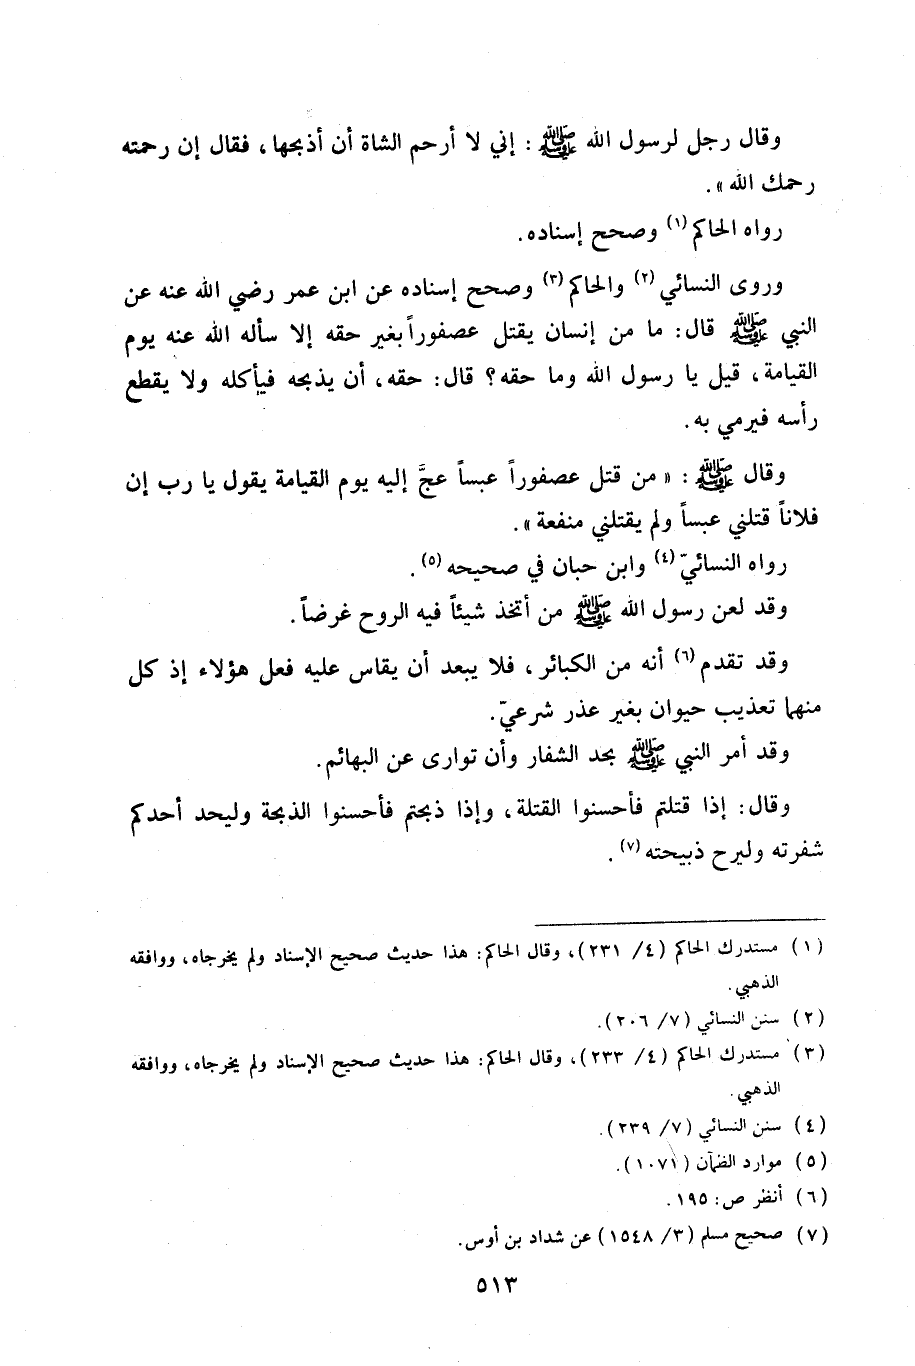 وقال رجل لرسول الله ﷺ : إني لا أرحم الشاة أن أذبحها، فقال إن رحمته
رحمك الله ».
رواه الحاكم (١) وصحح إسناده.
وروى النسائي (٢) والحاكم (٣) وصحح إسناده عن ابن عمر رضي الله عنه عن
النبي ﷺ قال: ما من إنسان يقتل عصفوراً بغير حقه إلا سأله الله عنه يوم
القيامة، قيل يا رسول الله وما حقه؟ قال: حقه، أن يذبحه فيأكله ولا يقطع
رأسه فيرمي به.
وقال ﷺ : « من قتل عصفوراً عبساً عجَّ إليه يوم القيامة يقول يا رب إن
فلاناً قتلني عبساً ولم يقتلني منفعة ».
رواه النسائيّ (٤) وابن حبان في صحيحه (٥) .
وقد لعن رسول الله ﷺ من أتخذ شيئاً فيه الروح غرضاً.
وقد تقدم (٦) أنه من الكبائر، فلا يبعد أن يقاس عليه فعل هؤلاء إذ كل
منهما تعذيب حيوان بغير عذر شرعيّ.
وقد أمر النبي ﷺ بحد الشفار وأن توارى عن البهائم.
وقال: إذا قتلتم فأحسنوا القتلة، وإذا ذبحتم فأحسنوا الذبحة وليحد أحدكم
شفرته وليرح ذبيحته (٧) .
(١) مستدرك الحاكم (٤/ ٢٣١)، وقال الحاكم: هذا حديث صحيح الإسناد ولم يخرجاه، ووافقه
الذهبي.
(٢) سنن النسائي (٧/ ٢٠٦).
(٣) مستدرك الحاكم (٤/ ٢٣٣)، وقال الحاكم: هذا حديث صحيح الإسناد ولم يخرجاه، ووافقه
الذهبي.
(٤) سنن النسائي (٧/ ٢٣٩).
(٥) موارد الظمآن (١٠٧١).
(٦) أنظر ص: ١٩٥.
(٧) صحيح مسلم (٣/ ١٥٤٨) عن شداد بن أوس.
٥١٣